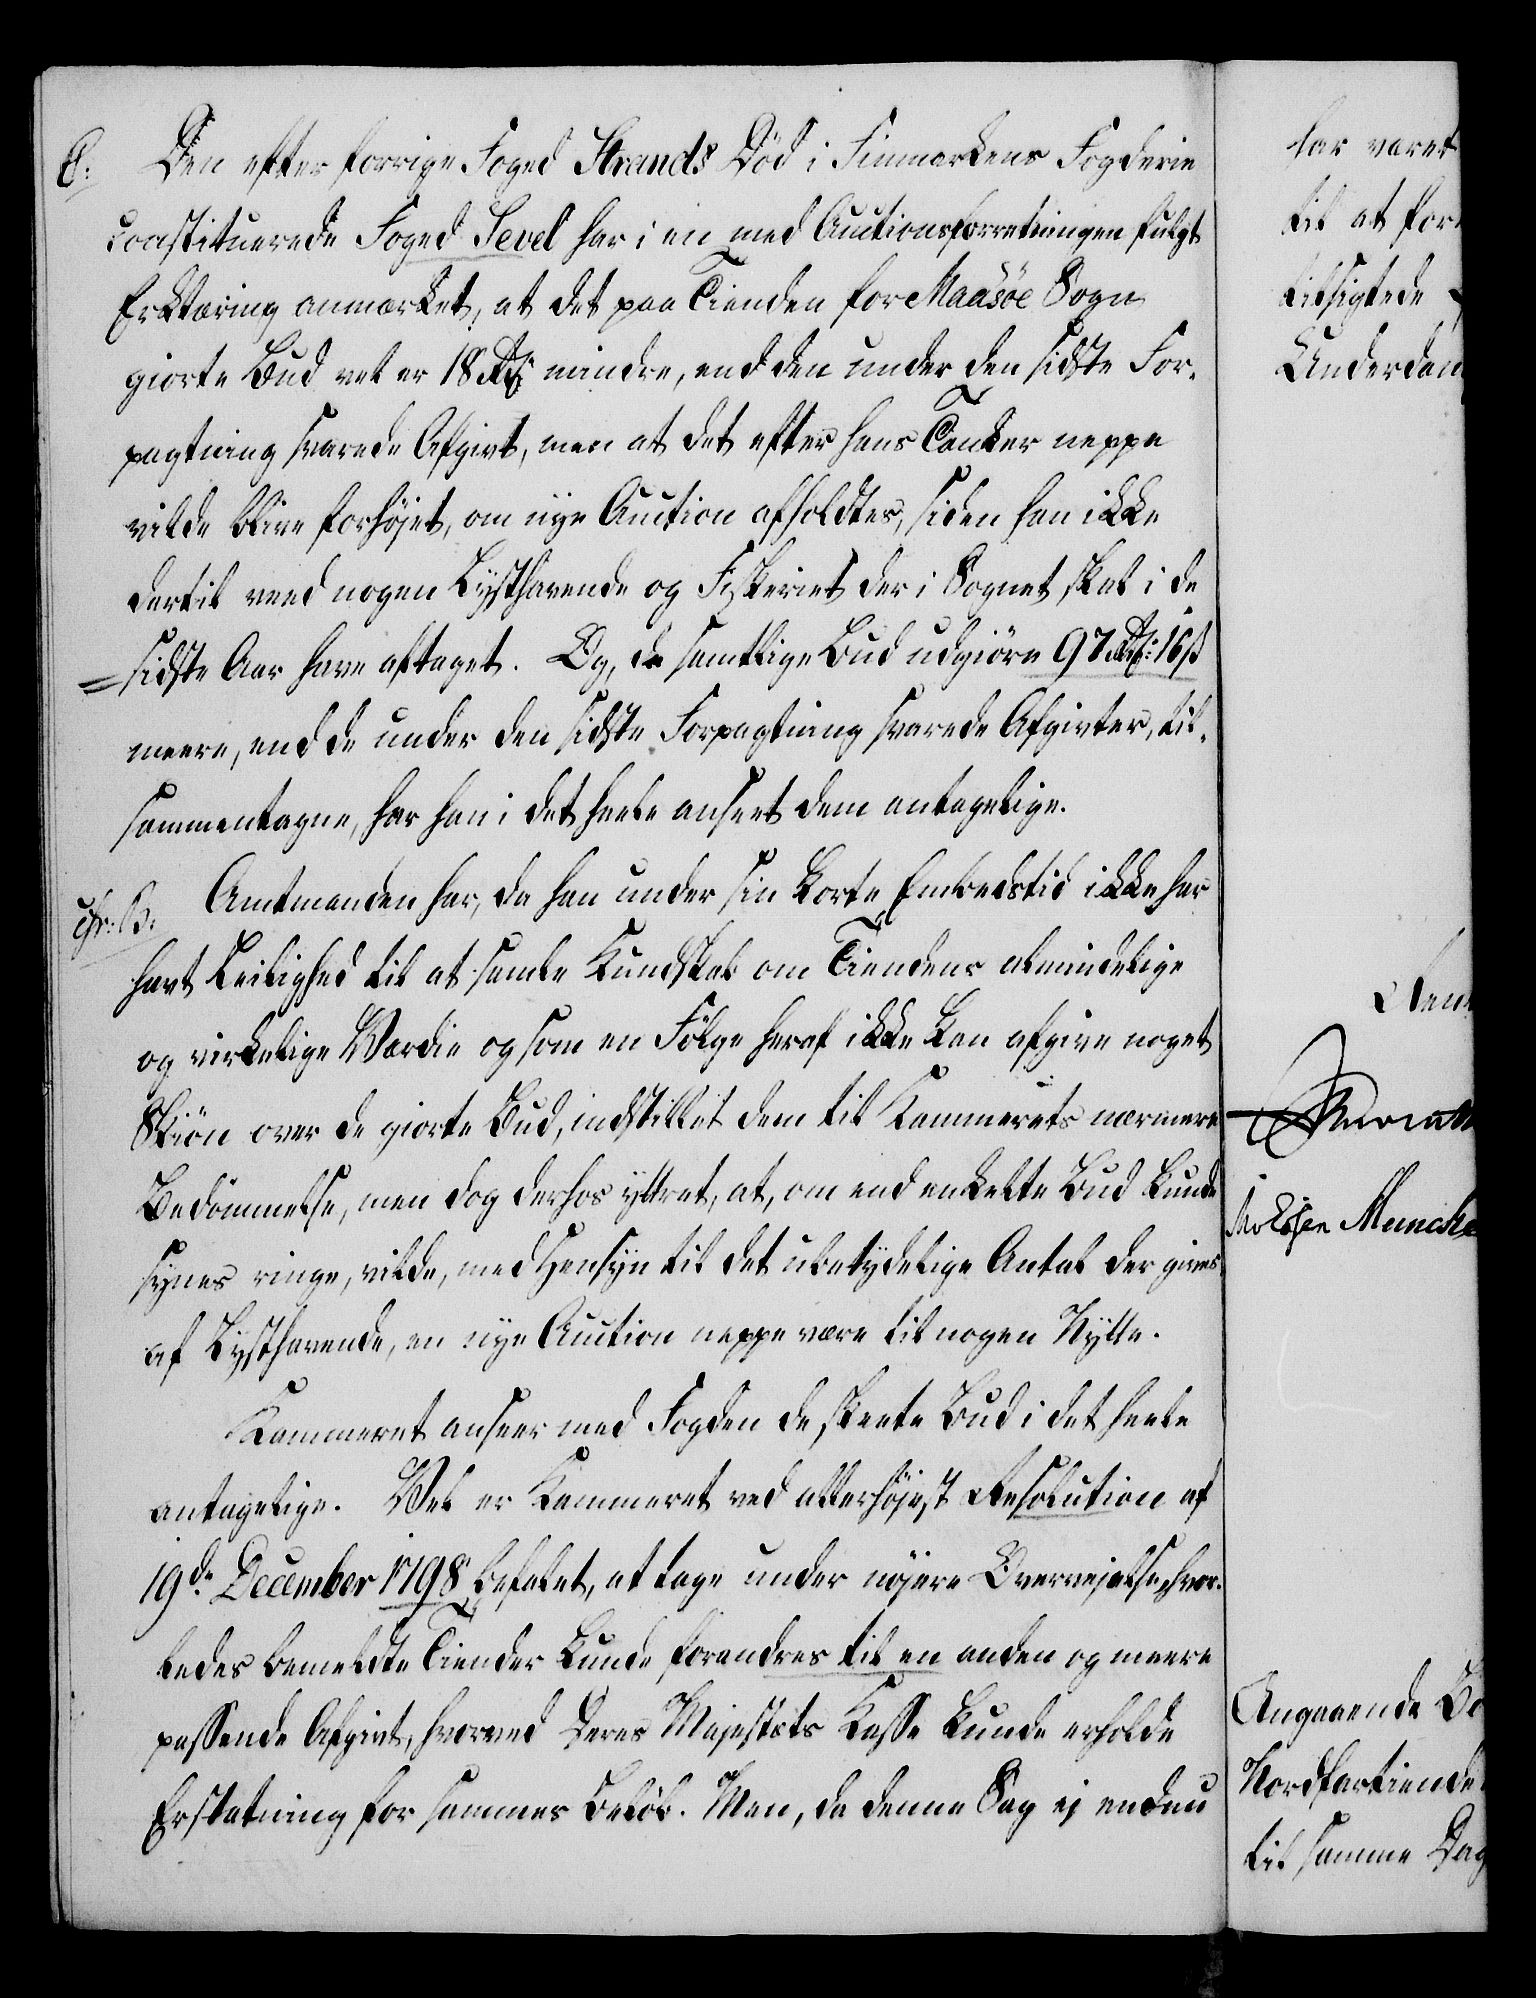 8: Den efter forrige Foged Strands Død i Finmarkens Fogderie
constituerede Foged Sevel har i en med Auctionsforretningen fulgt
Erklæring anmærket, at det paa Tienden for Maasöe Sogn
giorte Bud vel er 18 Rd mindre, end den under den sidste For-
pagtning svarede Afgivt, men at det efter hans Tanker neppe
vilde blive forhöjet, om nye Auction afholdtes, siden han ikke
dertil veed nogen Lysthavende og Fiskeriet der i Sognet skal i de
sidste Aar have aftaget. Og, da samtlige Bud udgiöre 97 Rd: 16 ß
meere, end de under den sidste Forpagtning svarede Afgivter, til-
sammentagne, har han i det heele anseet dem antagelige.
Amtmanden har, da han under sin korte Embedstid ikke har
havt Leilighed til at samle Kundskab om Tiendens almindelige
og virkelige Værdie og som en Fölge heraf ikke kan afgive noget
Skiön over de giorte Bud, indstillet dem til Kammerets nærmere
Bedömmelse, men dog derhos yttret, at, om end enkelte Bud kunde
synes ringe, vilde, med Hensyn til det ubetydelige Antal der gives
af Lysthavende, en nye Auction neppe være til nogen Nytte.
Kammeret anseer med Fogden de skeete Bud i det heele
antagelige. Vel er Kammeret ved allerhöjest Resolution af
19de December 1798 befalet, at tage under nöjere Overvejelse, hvor-
ledes bemeldte Tiender kunde forandres til en anden og meere
passende Afgivt, hvorved Deres Majestæts Kasse kunde erholde
Erstatning for sammes Beløb. Men, da denne Sag ej endnu
har været
til at for
tilsigtede
Underdan
Munche
Angaaende
til samme Dag